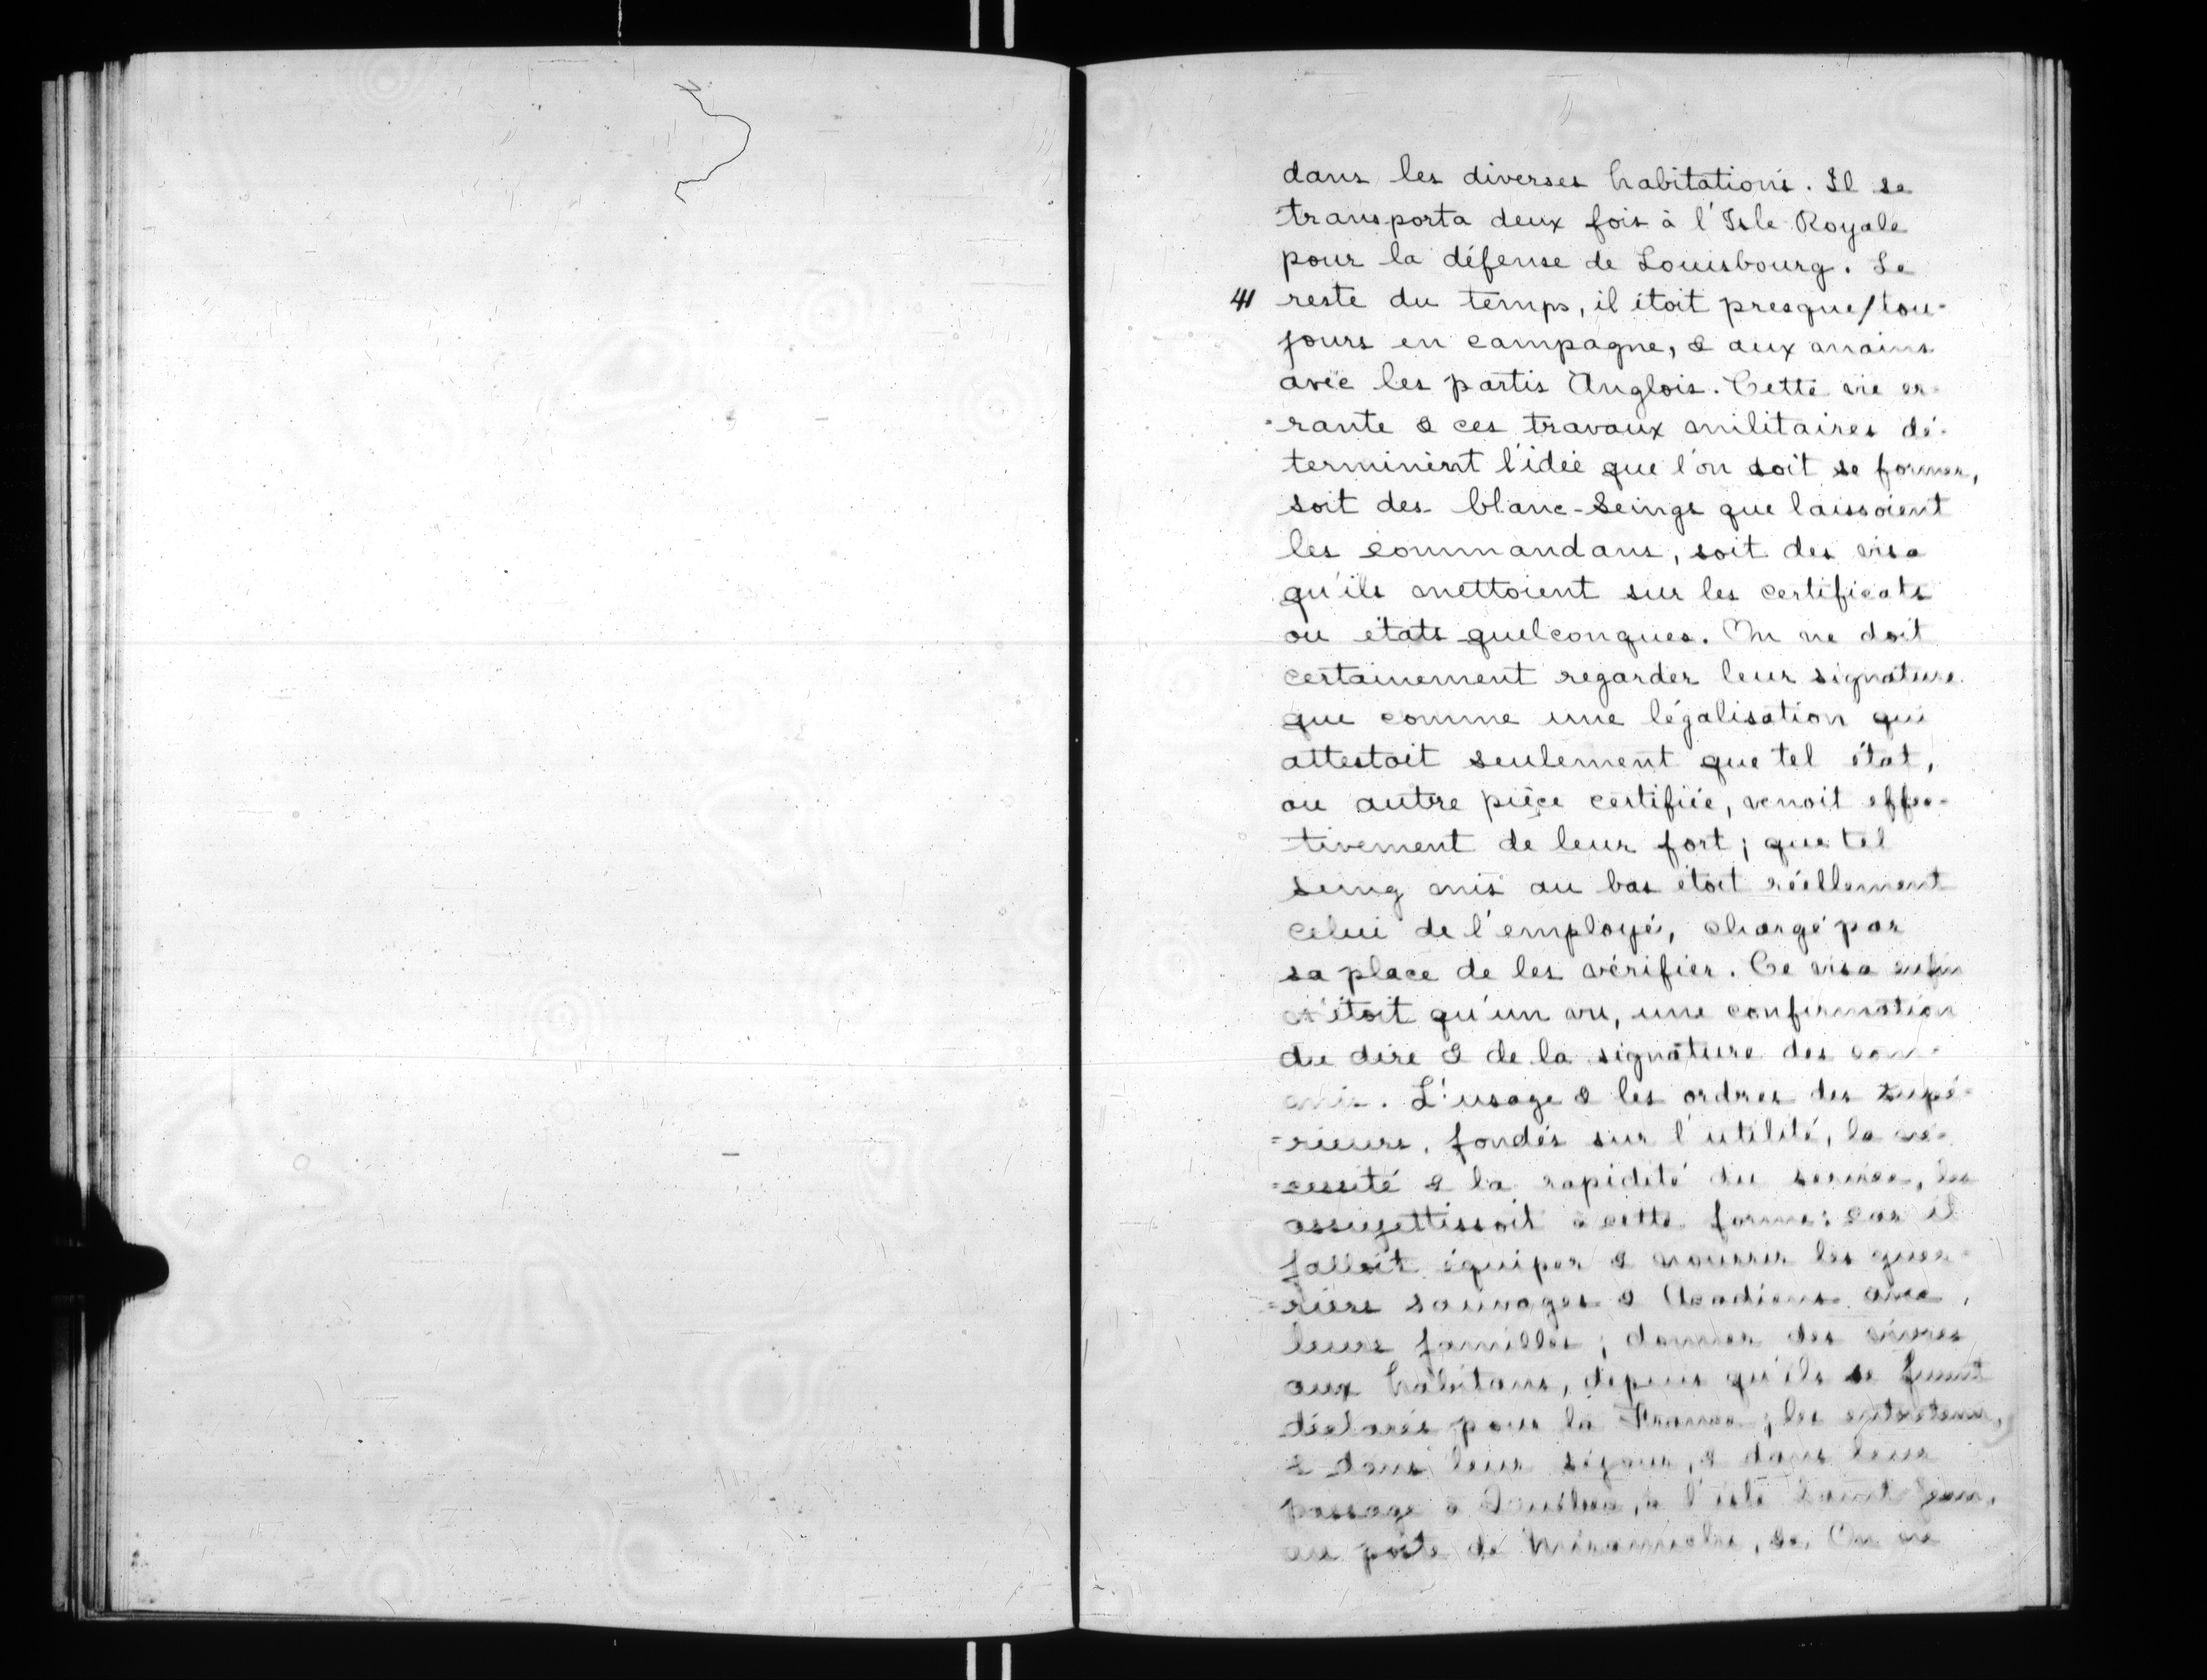 dans les diverses habitations. Il se
transporta deux fois à l'Isle Royale
pour la défense de Louisbourg. Le
41 reste du temps, il étoit presque/tou-
jours en campagne, & aux mains
avec les partis Anglois. Cette vie er-
-rante & ces travaux militaires dé-
terminent l'idée que l'on doit se former,
soit des blanc-seings que laissoient
les commandans, soit des visa
qu'ils mettoient sur les certificats
ou états quelconques. On ne doit
certainement regarder leur signature
que comme une légalisation qui
attestoit seulement que tel état,
ou autre pièce certifiée, venoit effec-
tivement de leur fort; que tel
seing mis au bas étoit réellement
celui de l'employé, chargé par
sa place de les vérifier. Ce visa enfin
n'étoit qu'un vu, une confirmation
du dire & de la signature des com-
mis. L'usage & les ordres des supé-
=rieurs, fondés sur l'utilité, la né-
=cessité & la rapidité du service, les
assujettissoit à cette forme: car il
falloit équiper & nourrir les guer-
=riers sauvages & Acadiens avec
leurs familles; donner des vivres
aux habitans, depuis qu'ils se furent
déclarés pour la France; les entretenir,
& dans leur séjour, & dans leur
passage à Québec, à l'isle Saint Jean,
au poste de Miramichi, &c. On ne